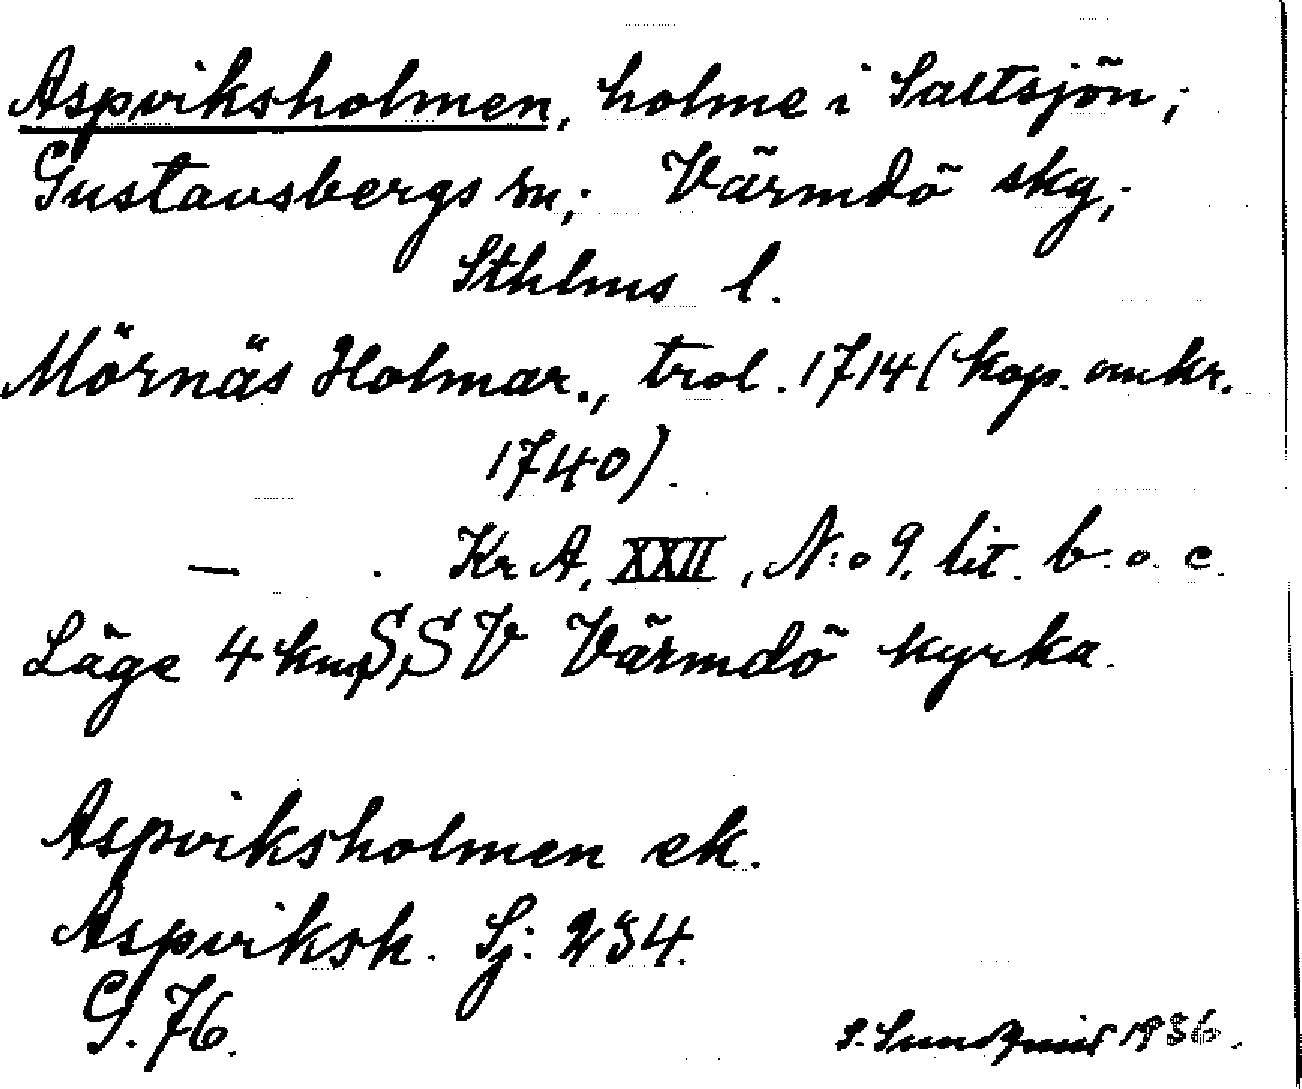 Aspviksholmen, holme i Saltsjön;
Gustavsbergs sn; Värmdö skg;
Sthlms l.
Mörnäs Holmar., trol. 1714 (kop. omkr.
1740).
— . Kr A, XXII, N:o 9. lit. b. o. c.
Läge 4 km S, S V Värmdö kyrka.
Aspviksholmen ek.
Aspviksh. Sj: 234.
G. 76.
S. Sundqvist 1936.